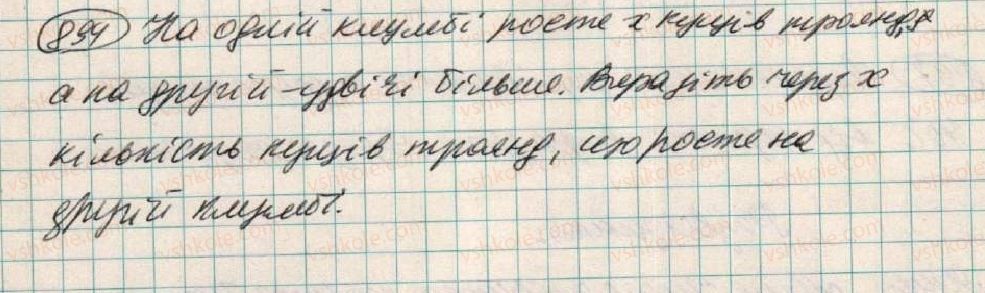 894 На одній клумбі росте х кущів троянд,
а на другій - удвічі більше. Виразіть через х
кількість кущів троянд, що росте на
другій клумбі.